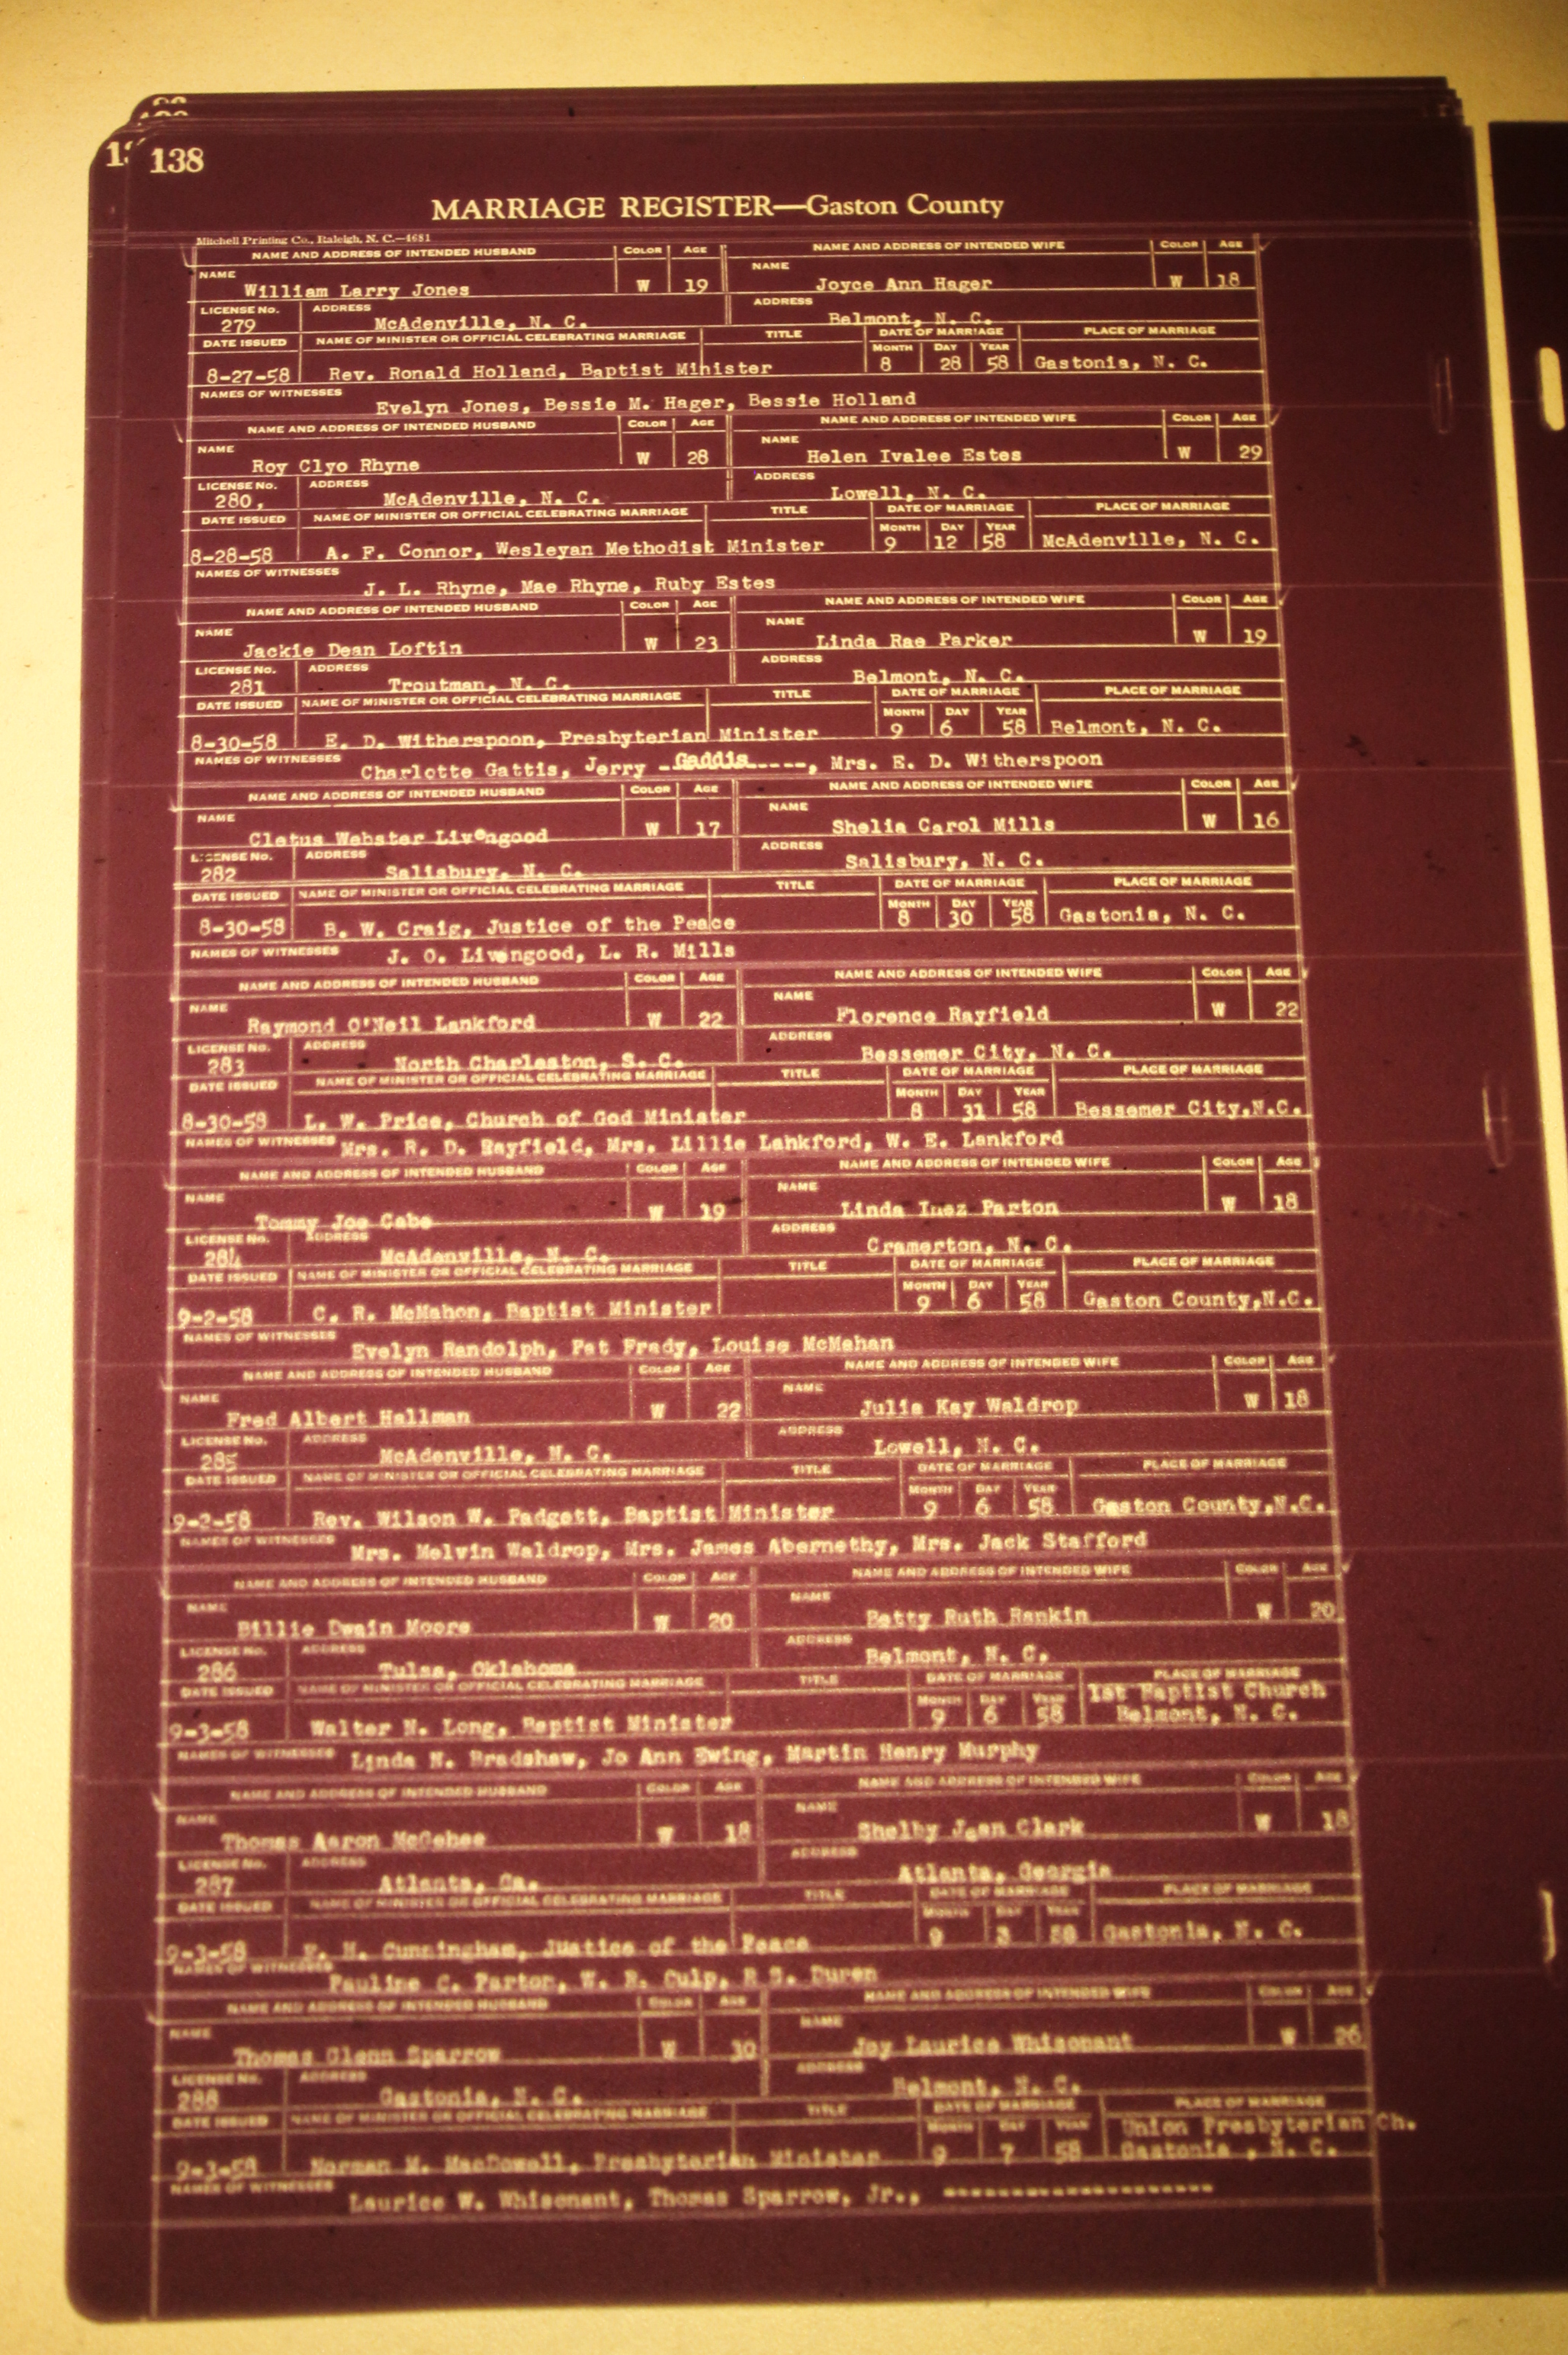 138
MARRIAGE REGISTER—Gaston County
Mitchell Printing Co., Raleigh, N. C.—4681
NAME AND ADDRESS OF INTENDED HUSBAND COLOR AGE NAME AND ADDRESS OF INTENDED WIFE COLOR AGE
NAME William Larry Jones W 19 NAME Joyce Ann Hager W 18
LICENSE No. 279 ADDRESS McAdenville, N. C. ADDRESS Belmont, N. C.
DATE ISSUED NAME OF MINISTER OR OFFICIAL CELEBRATING MARRIAGE TITLE DATE OF MARRIAGE PLACE OF MARRIAGE
MONTH DAY YEAR
8-27-58 Rev. Ronald Holland, Baptist Minister 8 28 58 Gastonia, N. C.
NAMES OF WITNESSES Evelyn Jones, Bessie M. Hager, Bessie Holland
NAME AND ADDRESS OF INTENDED HUSBAND COLOR AGE NAME AND ADDRESS OF INTENDED WIFE COLOR AGE
NAME Roy Clyo Rhyne W 28 NAME Helen Ivalee Estes W 29
LICENSE No. 280, ADDRESS McAdenville, N. C. ADDRESS Lowell, N. C.
DATE ISSUED NAME OF MINISTER OR OFFICIAL CELEBRATING MARRIAGE TITLE DATE OF MARRIAGE PLACE OF MARRIAGE
MONTH DAY YEAR
8-28-58 A. F. Connor, Wesleyan Methodist Minister 9 12 58 McAdenville, N. C.
NAMES OF WITNESSES J. L. Rhyne, Mae Rhyne, Ruby Estes
NAME AND ADDRESS OF INTENDED HUSBAND COLOR AGE NAME AND ADDRESS OF INTENDED WIFE COLOR AGE
NAME Jackie Dean Loftin W 23 NAME Linda Rae Parker W 19
LICENSE No. 281 ADDRESS Troutman, N. C. ADDRESS Belmont, N. C.
DATE ISSUED NAME OF MINISTER OR OFFICIAL CELEBRATING MARRIAGE TITLE DATE OF MARRIAGE PLACE OF MARRIAGE
MONTH DAY YEAR
8-30-58 E. D. Witherspoon, Presbyterian Minister 9 6 58 Belmont, N. C.
NAMES OF WITNESSES Charlotte Gattis, Jerry -Gaddis----, Mrs. E. D. Witherspoon
NAME AND ADDRESS OF INTENDED HUSBAND COLOR AGE NAME AND ADDRESS OF INTENDED WIFE COLOR AGE
NAME Cletus Webster Livengood W 17 NAME Shelia Carol Mills W 16
LICENSE No. 282 ADDRESS Salisbury, N. C. ADDRESS Salisbury, N. C.
DATE ISSUED NAME OF MINISTER OR OFFICIAL CELEBRATING MARRIAGE TITLE DATE OF MARRIAGE PLACE OF MARRIAGE
MONTH DAY YEAR
8-30-58 B. W. Craig, Justice of the Peace 8 30 58 Gastonia, N. C.
NAMES OF WITNESSES J. O. Livengood, L. R. Mills
NAME AND ADDRESS OF INTENDED HUSBAND COLOR AGE NAME AND ADDRESS OF INTENDED WIFE COLOR AGE
NAME Raymond O'Neil Lankford W 22 NAME Florence Rayfield W 22
LICENSE No. 283 ADDRESS North Charleston, S. C. ADDRESS Bessemer City, N. C.
DATE ISSUED NAME OF MINISTER OR OFFICIAL CELEBRATING MARRIAGE TITLE DATE OF MARRIAGE PLACE OF MARRIAGE
MONTH DAY YEAR
8-30-58 L. W. Price, Church of God Minister 8 31 58 Bessemer City,N.C.
NAMES OF WITNESSES Mrs. R. D. Rayfield, Mrs. Lillie Lankford, W. E. Lankford
NAME AND ADDRESS OF INTENDED HUSBAND COLOR AGE NAME AND ADDRESS OF INTENDED WIFE COLOR AGE
NAME Tommy Joe Cabe W 19 NAME Linda Inez Parton W 18
LICENSE No. 284 ADDRESS McAdenville, N. C. ADDRESS Cramerton, N. C.
DATE ISSUED NAME OF MINISTER OR OFFICIAL CELEBRATING MARRIAGE TITLE DATE OF MARRIAGE PLACE OF MARRIAGE
MONTH DAY YEAR
9-2-58 C. R. McMahon, Baptist Minister 9 6 58 Gaston County,N.C.
NAMES OF WITNESSES Evelyn Randolph, Pat Frady, Louise McMahan
NAME AND ADDRESS OF INTENDED HUSBAND COLOR AGE NAME AND ADDRESS OF INTENDED WIFE COLOR AGE
NAME Fred Albert Hallman W 22 NAME Julia Kay Waldrop W 18
LICENSE No. 285 ADDRESS McAdenville, N. C. ADDRESS Lowell, N. C.
DATE ISSUED NAME OF MINISTER OR OFFICIAL CELEBRATING MARRIAGE TITLE DATE OF MARRIAGE PLACE OF MARRIAGE
MONTH DAY YEAR
9-2-58 Rev. Wilson W. Padgett, Baptist Minister 9 6 58 Gaston County,N.C.
NAMES OF WITNESSES Mrs. Melvin Waldrop, Mrs. James Abernethy, Mrs. Jack Stafford
NAME AND ADDRESS OF INTENDED HUSBAND COLOR AGE NAME AND ADDRESS OF INTENDED WIFE COLOR AGE
NAME Billie Dwain Moore W 20 NAME Betty Ruth Rankin W 20
LICENSE No. 286 ADDRESS Tulsa, Oklahoma ADDRESS Belmont, N. C.
DATE ISSUED NAME OF MINISTER OR OFFICIAL CELEBRATING MARRIAGE TITLE DATE OF MARRIAGE PLACE OF MARRIAGE
MONTH DAY YEAR 1st Baptist Church
9-3-58 Walter N. Long, Baptist Minister 9 6 58 Belmont, N. C.
NAMES OF WITNESSES Linda N. Bradshaw, Jo Ann Ewing, Martin Henry Murphy
NAME AND ADDRESS OF INTENDED HUSBAND COLOR AGE NAME AND ADDRESS OF INTENDED WIFE COLOR AGE
NAME Thomas Aaron McGehee W 18 NAME Shelby Jean Clark W 18
LICENSE No. 287 ADDRESS Atlanta, Ga. ADDRESS Atlanta, Georgia
DATE ISSUED NAME OF MINISTER OR OFFICIAL CELEBRATING MARRIAGE TITLE DATE OF MARRIAGE PLACE OF MARRIAGE
MONTH DAY YEAR
9-3-58 H. Cunningham, Justice of the Peace 9 3 58 Gastonia, N. C.
NAMES OF WITNESSES Pauline C. W. R. Culp, Duren
NAME AND ADDRESS OF INTENDED HUSBAND COLOR AGE NAME AND ADDRESS OF INTENDED WIFE COLOR AGE
NAME Thomas Glenn Sparrow W 30 NAME Joy Laurice Whisonant W 26
LICENSE No. 288 ADDRESS Gastonia, N. C. ADDRESS Belmont, N. C.
DATE ISSUED NAME OF MINISTER OR OFFICIAL CELEBRATING MARRIAGE TITLE DATE OF MARRIAGE PLACE OF MARRIAGE
MONTH DAY YEAR Union Presbyterian Ch.
9-3-58 Norman M. MacDowell, Presbyterian Minister 9 7 58 Gastonia , N. C.
NAMES OF WITNESSES Laurice W. Whisonant, Thomas Sparrow, Jr., --------------------